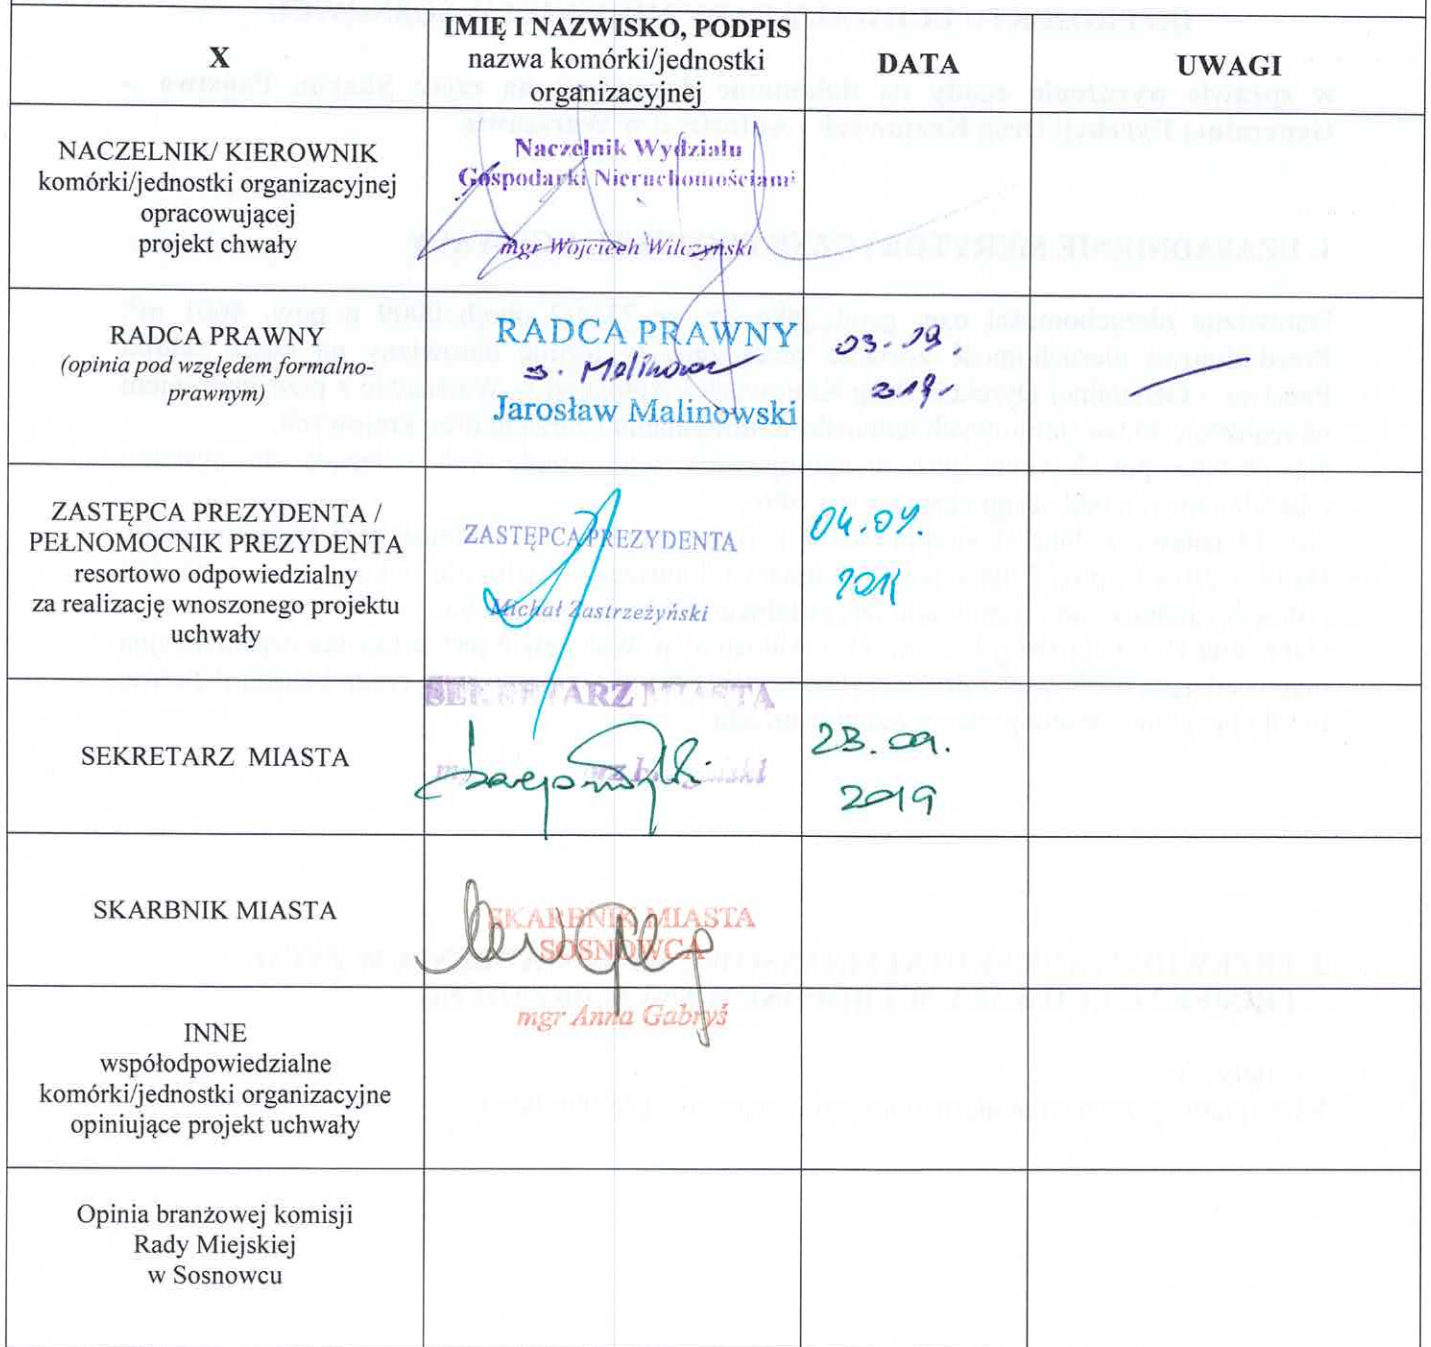 X
IMIĘ I NAZWISKO, PODPIS
nazwa komórki/jednostki
organizacyjnej
DATA
UWAGI
NACZELNIK/ KIEROWNIK
komórki/jednostki organizacyjnej
opracowującej
projekt chwały
Naczelnik Wydziału
Gospodarki Nieruchomościami
mgr Wojciech Wilczyński
RADCA PRAWNY
(opinia pod względem formalno-
prawnym)
RADCA PRAWNY
Jarosław Malinowski
ZASTĘPCA PREZYDENTA /
PEŁNOMOCNIK PREZYDENTA
resortowo odpowiedzialny
za realizację wnoszonego projektu
uchwały
ZASTĘPCA PREZYDENTA
Michał Zastrzeżyński
04.04.
SEKRETARZ MIASTA
SEKRETARZ MIASTA
2019
SKARBNIK MIASTA
SKARBNIK MIASTA
SOSNOWCA
mgr Anna Gabryś
INNE
współodpowiedzialne
komórki/jednostki organizacyjne
opiniujące projekt uchwały
Opinia branżowej komisji
Rady Miejskiej
w Sosnowcu